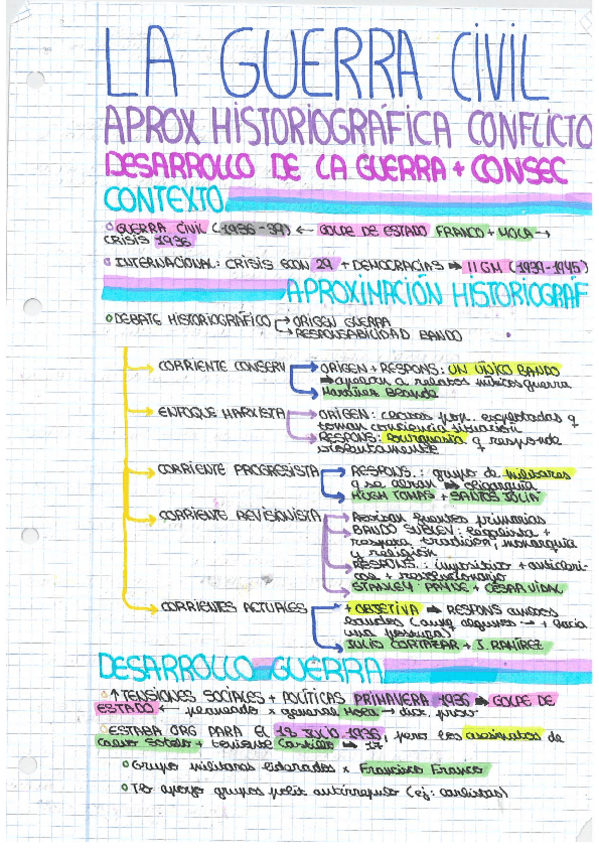 LA GUERRA CIVIL
APROX HISTORIOGRÁFICA CONFLICTO
DESARROLLO DE LA GUERRA + CONSEC
CONTEXTO
GUERRA CIVIL (1936-39) ← GOLPE DE ESTADO FRANCO + MOLA →
CRISIS 1936
INTERNACIONAL: CRISIS ECON 29 + DEMOCRACIAS ⇒ II GM (1939-1945)
APROXIMACIÓN HISTORIOGRÁF
DEBATE HISTORIOGRÁFICO → ORIGEN GUERRA
→ RESPONSABILIDAD BANDO
CORRIENTE CONSERV → ORIGEN + RESPONS: UN ÚNICO BANDO
⇒ apelan a relatos míticos guerra
Martínez Bande
ENFOQUE MARXISTA → ORIGEN: clases pop. explotadas q
toman conciencia situación
→ RESPONS: Burguesía q responde
violentamente
CORRIENTE PROGRESISTA → RESPONS.: grupo de militares
q se alzan ⇒ oligarquía
HUGH TOMAS + SANTOS JULIÁ
CORRIENTE REVISIONISTA → Revisan fuentes primarias
→ BANDO SUBLEV: legalista +
respeta tradición, monarquía
y religión
→ RESPONS.: impositivo + anticleri-
cal + revolucionario
STANLEY PAYNE + CÉSAR VIDAL
CORRIENTES ACTUALES → + OBJETIVA ⇒ RESPONS ambos
bandos (aunq algunos → + hacia
una postura)
JULIO CORTAZAR + J. RAMÍREZ
DESARROLLO GUERRA
↑ TENSIONES SOCIALES + POLÍTICAS PRIMAVERA 1936 ⇒ GOLPE DE
ESTADO ← planeado x general Mola →
ESTABA ORG PARA EL 18 JULIO 1936, pero los asesinatos de
Calvo Sotelo + teniente Castillo ⇒ 17
Grupo militares liderados x Francisco Franco
Tb apoyo grupos polít antirrepub (ej: carlistas)